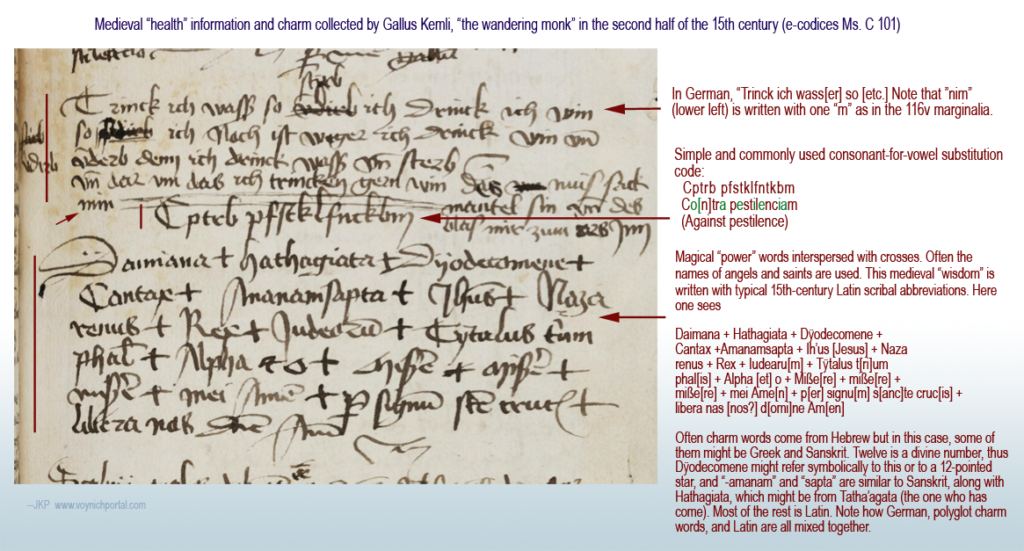 Medieval “health” information and charm collected by Gallus Kemli, “the wandering monk” in the second half of the 15th century (e-codices Ms. C 101)
Trinck ich wass so ich Drinck ich win
so ich Nach ist weger ich drinck win vn
verderb denn ich drinck wass vn sterb
vn dar vm das ich trincken gern win Das mus sack
nim mantel sin vn des
Cptrb pfstklfntkbm blas mir zum ars Jnn
Daimana + hathagiata + Dÿodecomene +
Cantax + Amanamsapta + Jhus + Naza
renus + Rex + Judearu + Cytalus tum
phal + Alpha et o + Misse + misse +
misse + mei Ame + P signu ste cruc +
libera nas dne Ame
In German, “Trinck ich wass[er] so [etc.] Note that ”nim”
(lower left) is written with one “m” as in the 116v marginalia.
Simple and commonly used consonant-for-vowel substitution
code:
Cptrb pfstklfntkbm
Co[n]tra pestilenciam
(Against pestilence)
Magical “power” words interspersed with crosses. Often the
names of angels and saints are used. This medieval “wisdom” is
written with typical 15th-century Latin scribal abbreviations. Here
one sees
Daimana + Hathagiata + Dÿodecomene +
Cantax +Amanamsapta + Ih’us [Jesus] + Naza
renus + Rex + Iudearu[m] + Tÿtalus t[ri]um
phal[is] + Alpha [et] o + Miße[re] + miße[re] +
miße[re] + mei Ame[n] + p[er] signu[m] s[anc]te cruc[is] +
libera nas [nos?] d[omi]ne Am[en]
Often charm words come from Hebrew but in this case, some of
them might be Greek and Sanskrit. Twelve is a divine number, thus
Dÿodecomene might refer symbolically to this or to a 12-pointed
star, and “-amanam” and “sapta” are similar to Sanskrit, along with
Hathagiata, which might be from Tatha’agata (the one who has
come). Most of the rest is Latin. Note how German, polyglot charm
words, and Latin are all mixed together.
–JKP www.voynichportal.com